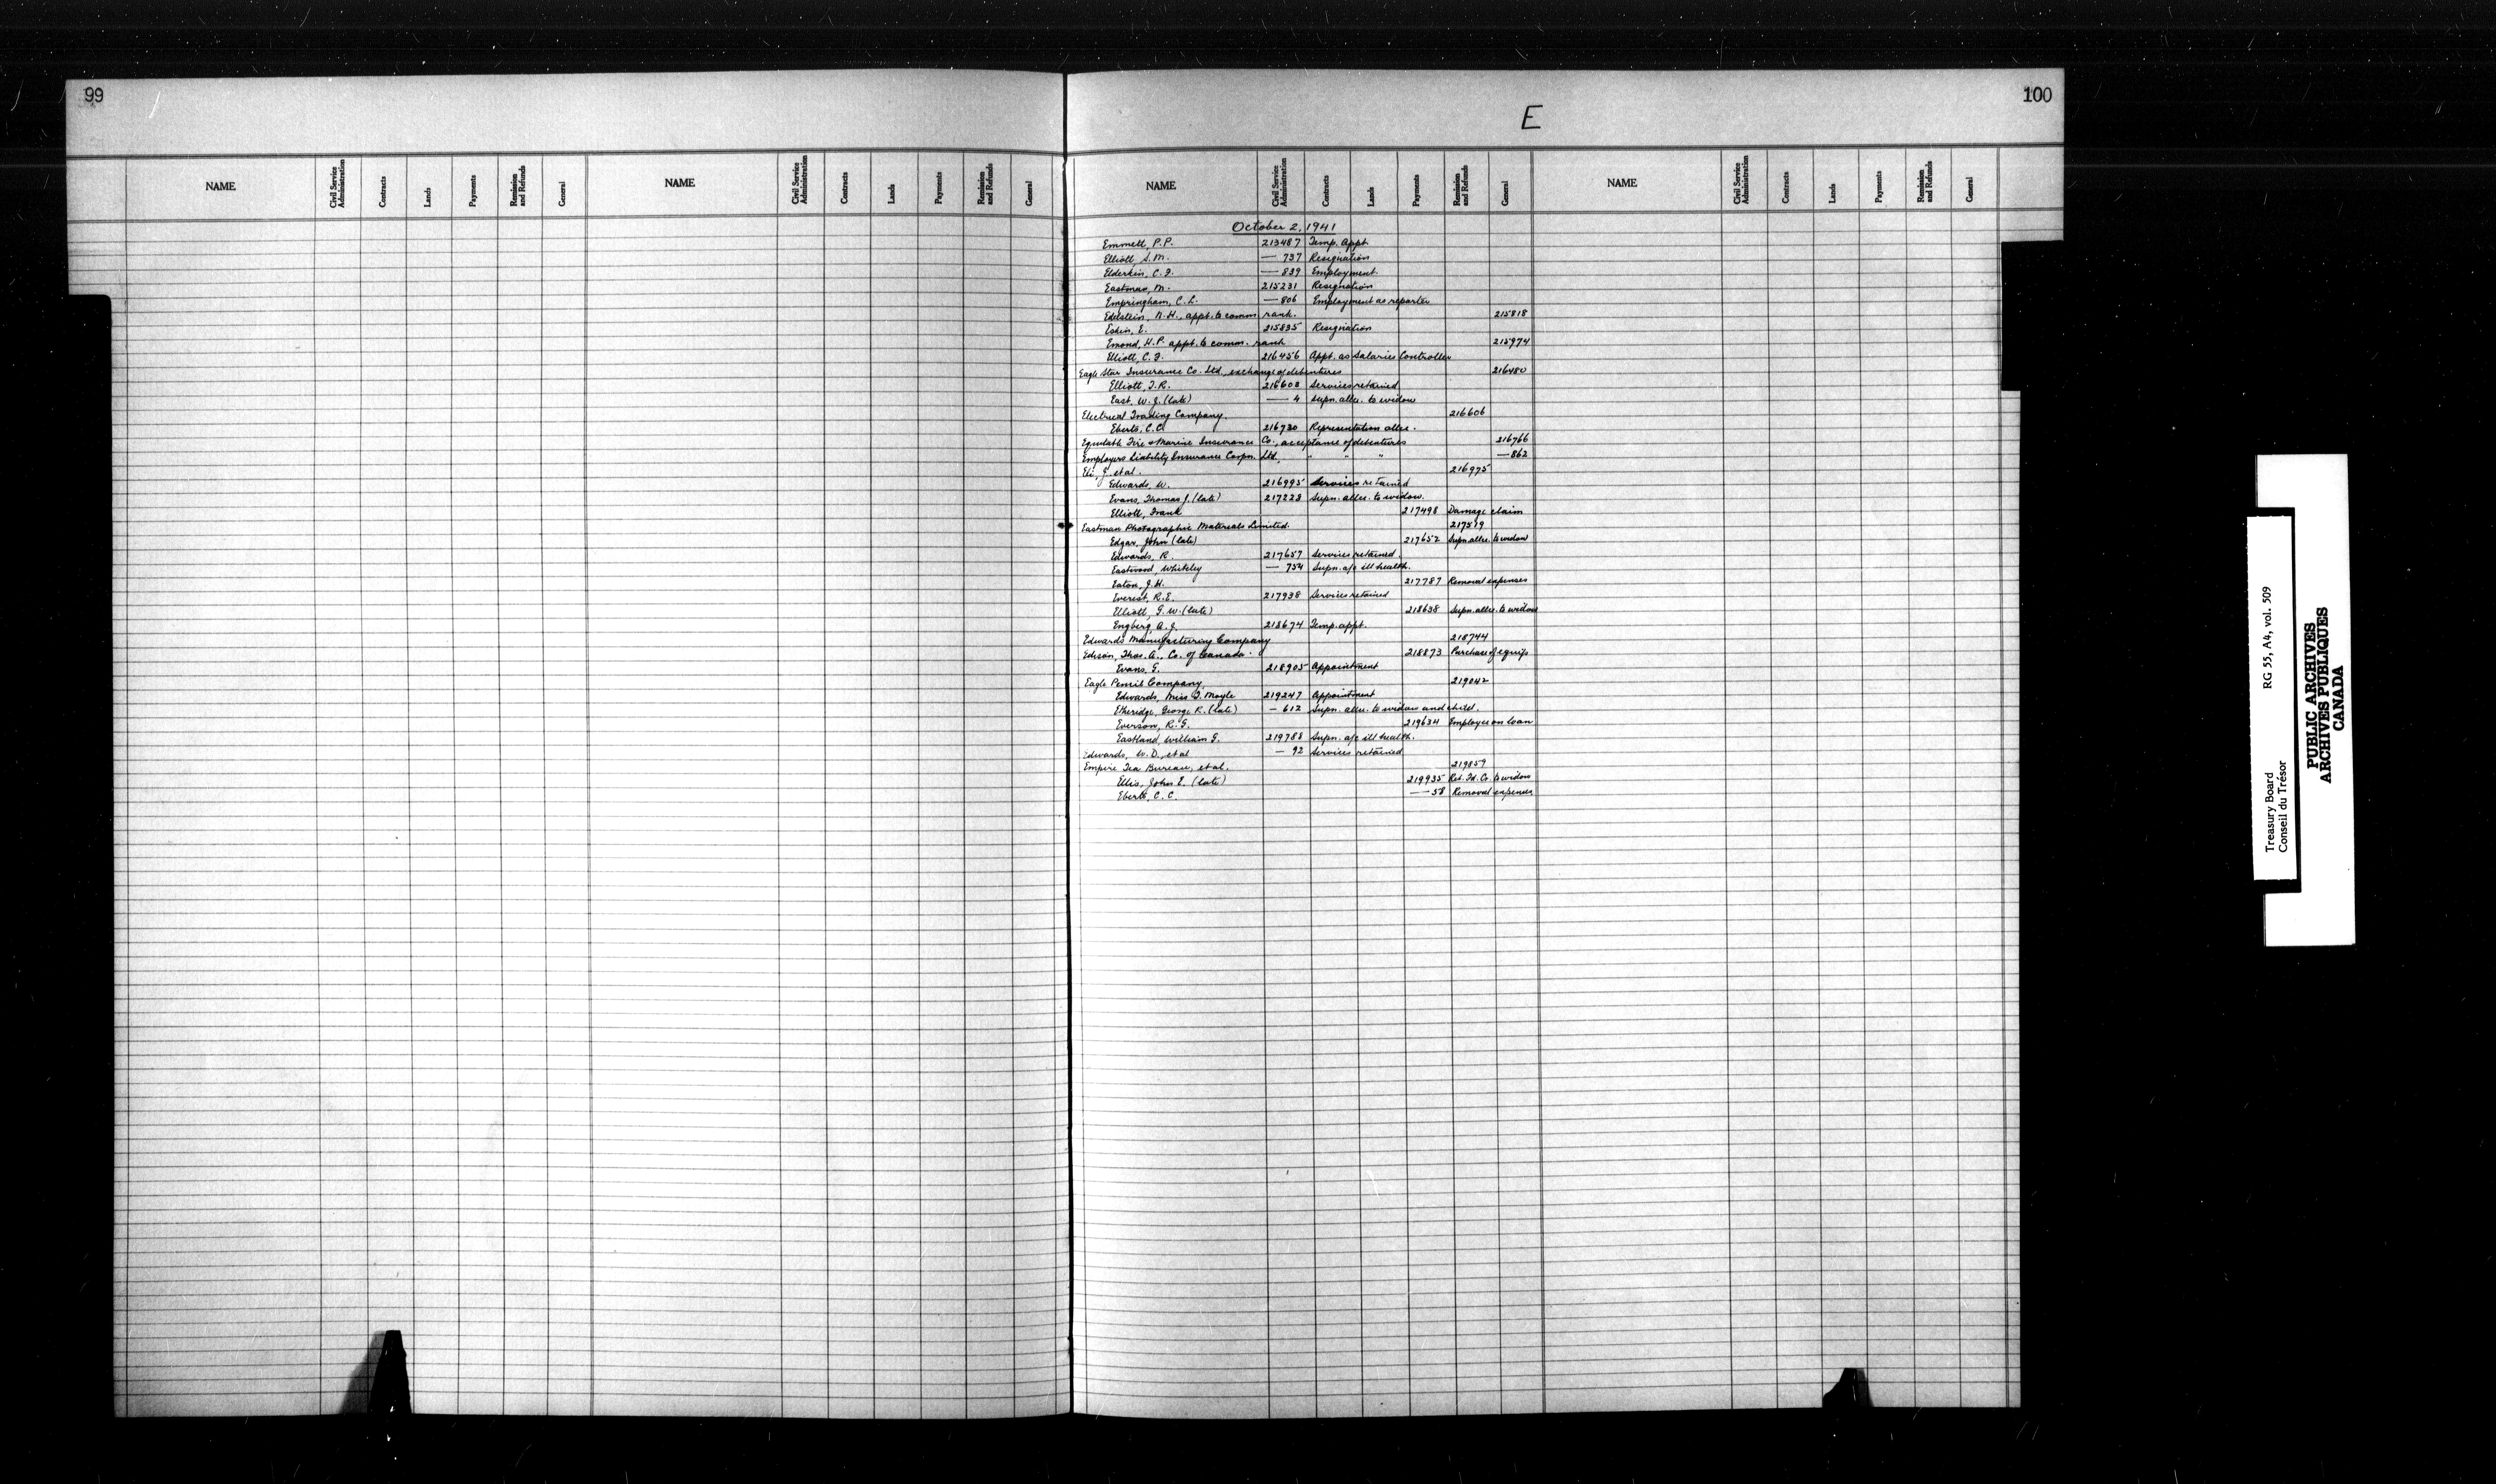 99
NAME Civil Service Administration Contracts Lands Payments Remission and Refunds General NAME Civil Service Administration Contracts Lands Payments Remission and Refunds General
100
E
NAME Civil Service Administration Contracts Lands Payments Remission and Refunds General NAME Civil Service Administration Contracts Lands Payments Remission and Refunds General
October 2, 1941
Emmett, P.P. 213487 Temp. Appt
Elliott, S.M. — 737 Resignation
Elderkin, C.F. — 839 Employment.
Eastman, M. 215231 Resignation
Empringham, C.L. — 806 Employment as reporter
Edelstein, N.H., appt. to comm. rank. 215818
Eskin, E. 215835 Resignation
Emond, H.P. appt. to comm. rank 215974
Elliott, C.F. 216456 Appt. as Salaries Controller
Eagle Star Insurance Co. Ltd., exchange of debentures 216480
Elliott, T.R. 216603 Services retained
East, W.J. (late) — 4 Supn. allce. to widow
Electrical Trading Company. 216606
Eberts, C.C. 216730 Representation allce.
Equitable Fire & Marine Insurance Co., acceptance of debentures 216766
Employers Liability Insurance Corpn. Ltd. " " " — 862
Eli, J. et al. 216975
Edwards, W. 216995 Services retained
Evans, Thomas J. (late) 217223 Supn. allce. to widow.
Elliott, Frank 217498 Damage claim
Eastman Photographic Materials Limited. 217519
Edgar, John (late) 217652 Supn. allce. to widow
Edwards, R. 217657 Services retained.
Eastwood, Whiteley — 754 Supn. a/c ill health.
Eaton, J.H. 217787 Removal expenses
Everest, R.E. 217938 Services retained
Elliott, G.W. (late) 218638 Supn. allce. to widow
Engberg, A.J. 218674 Temp. appt.
Edwards Manufacturing Company 218744
Edison, Thos. A., Co. of Canada. 218873 Purchase of equip
Evans, G. 218905 Appointment
Eagle Pencil Company 219042
Edwards, Miss F. Moyle 219247 Appointment
Etheridge, George R. (late) — 612 Supn. allce. to widow and child.
Everson, R.G. 219634 Employee on loan
Eastland, William G. 219788 Supn. a/c ill health.
Edwards, W.D., et al — 92 Services retained
Empire Tea Bureau, et al. 219859
Ellis, John E. (late) 219935 Ret. Fd. Co. to widow
Eberts, C.C. — 58 Removal expenses
Treasury Board RG 55, A4, vol. 509
Conseil du Trésor
PUBLIC ARCHIVES
ARCHIVES PUBLIQUES
CANADA